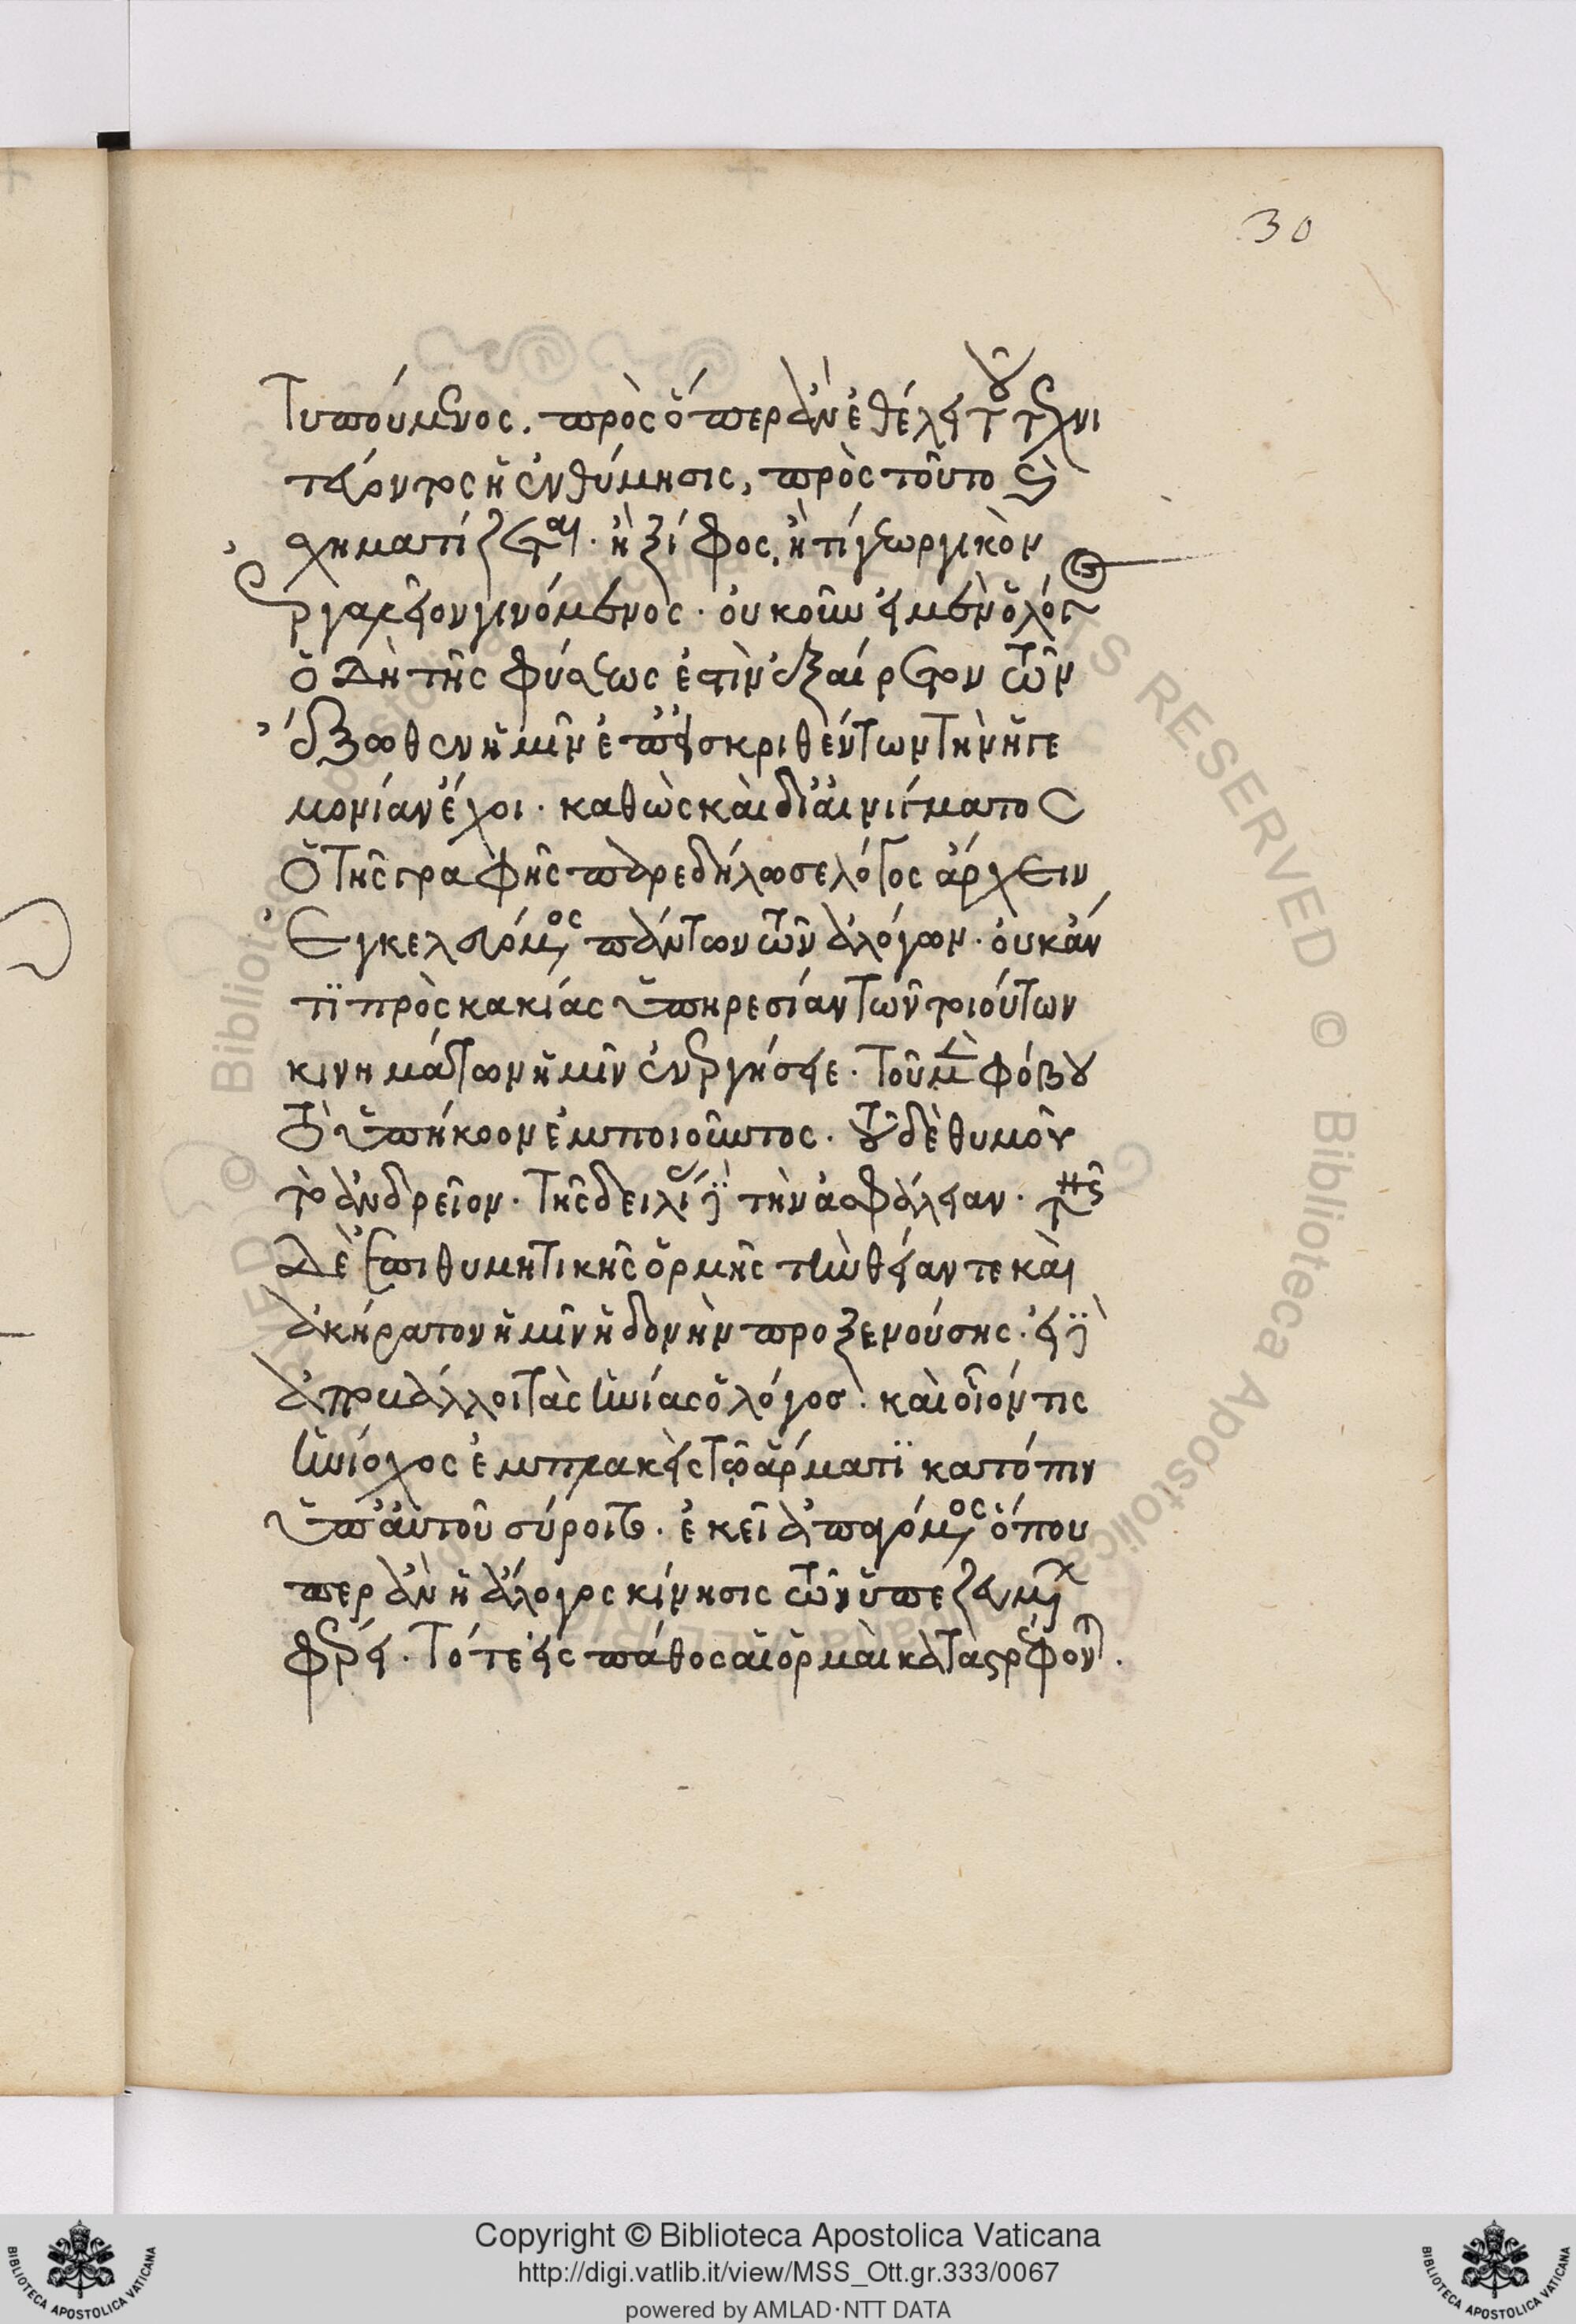 30
Τυπούμενος. πρὸς ὅπερ ἂν ἐθέλει τοῦ τεχνι
τεύοντος ἡ ἐνθύμησις, πρὸς τοῦτο καὶ
σχηματίζεται. ἢ ξίφος, ἤ τι γεωργικὸν
ἐργαλεῖον γινόμενος. οὐκοῦν εἰ μὲν ὁ λόγος
ὃ δὴ τῆς φύσεως ἐστὶν ἐξαίρετον τῶν
ἔξωθεν ἡμῖν ἐπεισκριθέντων τὴν ἡγε
μονίαν ἔχοι. καθὼς καὶ δι' αἰνίγματος
ὁ τῆς γραφῆς παρεδήλωσε λόγος ἄρχειν
ἐγκελευόμενος πάντων τῶν ἀλόγων. οὐκ ἄν
τι πρὸς κακίας ὑπηρεσίαν τῶν τοιούτων
κινημάτων ἡμῖν ἐνεργήσειε. τοῦ μὲν φόβου
τὸ ὑπήκοον ἐμποιοῦντος. τοῦ δὲ θυμοῦ
τὸ ἀνδρεῖον. τῆς δειλίας δὲ τὴν ἀσφάλειαν. τῆς
δὲ ἐπιθυμητικῆς ὁρμῆς τὴν θείαν τε καὶ
ἀκήρατον ἡμῖν ἡδονὴν προξενούσης. εἰ δὲ
ἀποβάλλοι τὰς ἡνίας ὁ λόγος. καὶ οἷόν τις
ἡνίοχος ἐμπλακεὶς τῷ ἅρματι κατόπιν
ὑπ' αὐτοῦ σύροιτο. ἐκεῖ ἀπαγόμενος ὅπου
περ ἂν ἡ ἄλογος κίνησις τῶν ὑπεζευγμένων
φέρει. τότε εἰς πάθος αἱ ὁρμαὶ καταστρέφονται.
Copyright © Biblioteca Apostolica Vaticana
http://digi.vatlib.it/view/MSS_Ott.gr.333/0067
powered by AMLAD·NTT DATA
BIBLIOTECA APOSTOLICA VATICANA
BIBLIOTECA APOSTOLICA VATICANA